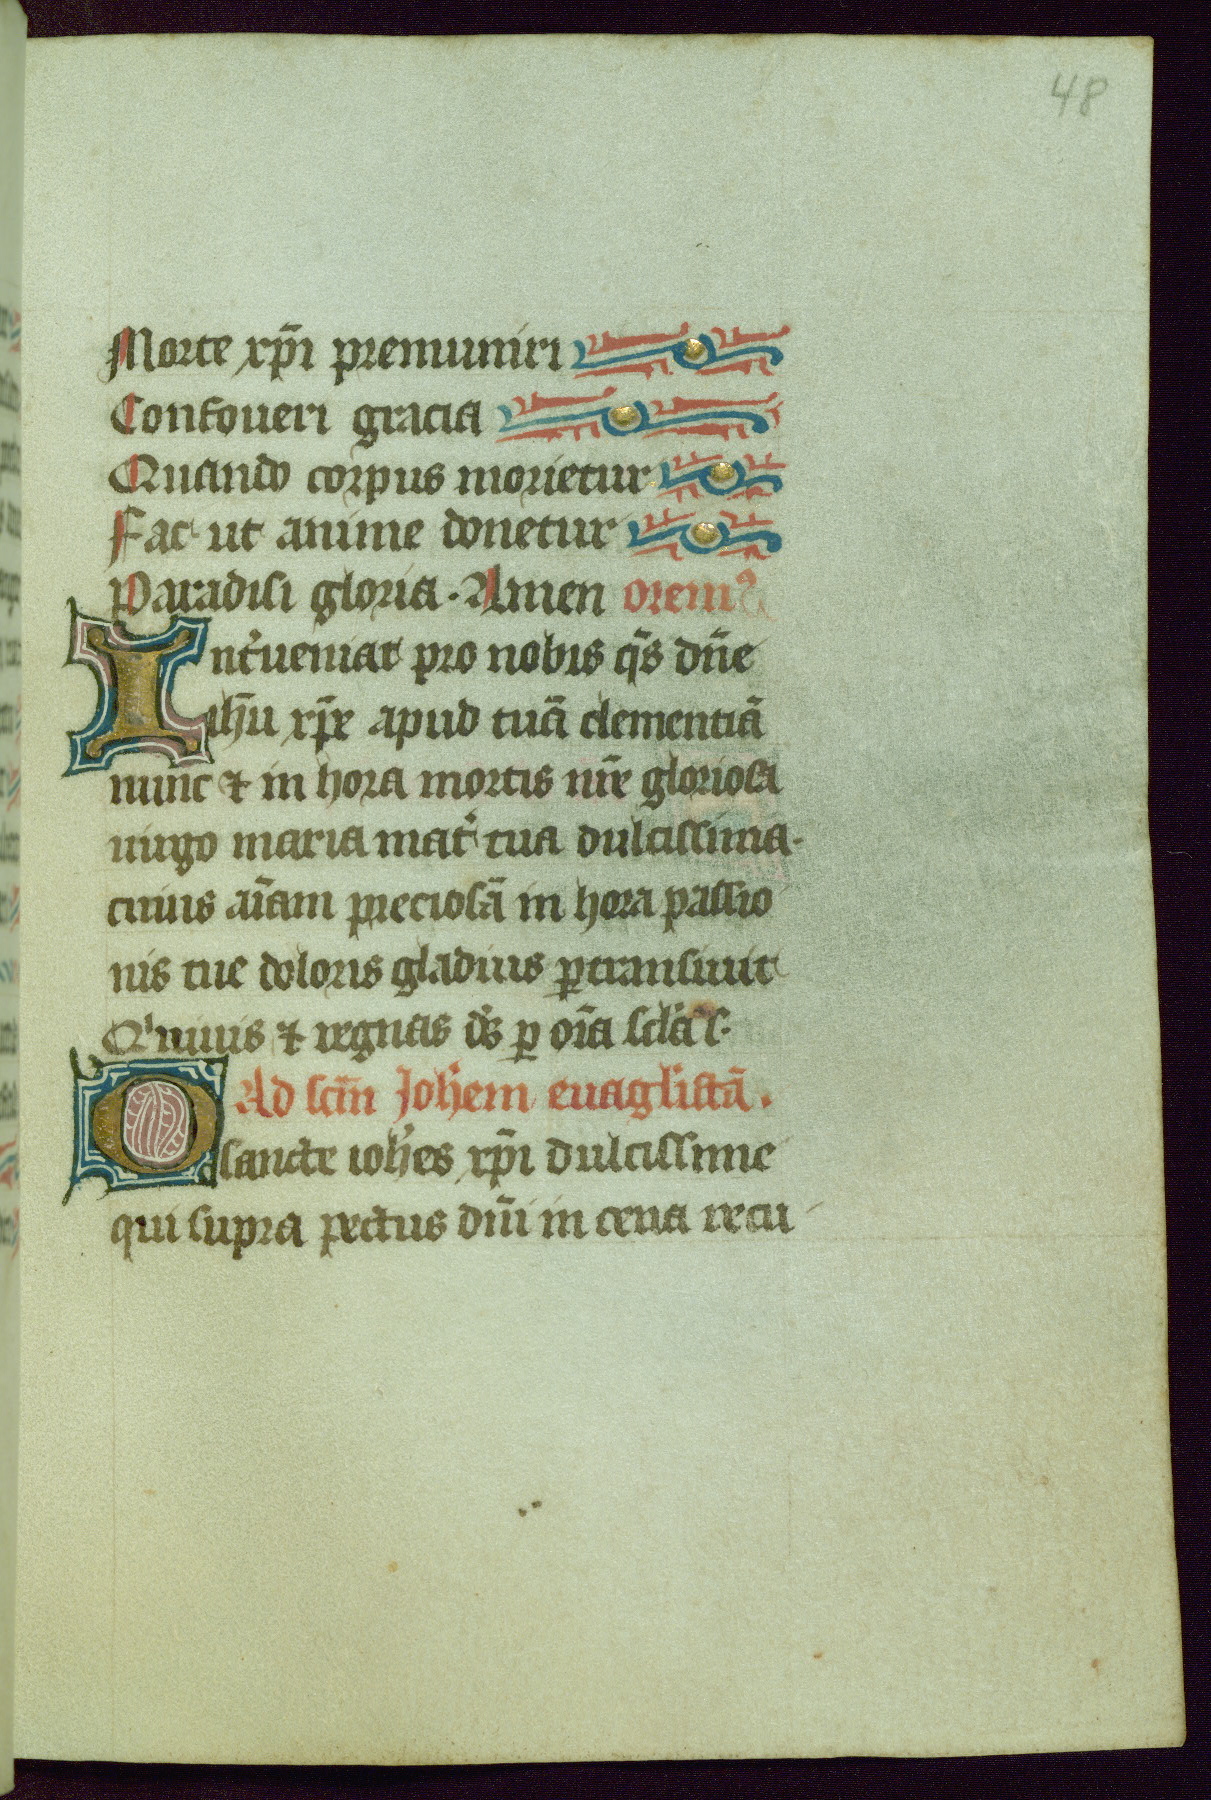 48
Morte xp̄i premuniri
Confoueri gracia
Quando corpus morietur
Fac ut anime donetur
Paradisi gloria. Amen oremꝰ
Int̾ueniat pro nobis q̄s dn̄e
ihū xp̄e apud tuā clementiā
nunc ⁊ in hora mortis nr̄e gloriosa
uirgo maria mat̾ tua dulcissima.
cuius aīam preciosā in hora passio
nis tue doloris gladius ꝑtransiuit
Qͥ uiuis ⁊ regnas ds̄ ꝑ oīa scl̄a s.
Ad scm̄ Joh̄em euāglistā.
O sancte ioh̄es xp̄i dulcissime
qui supra pectus dn̄i in cena recu